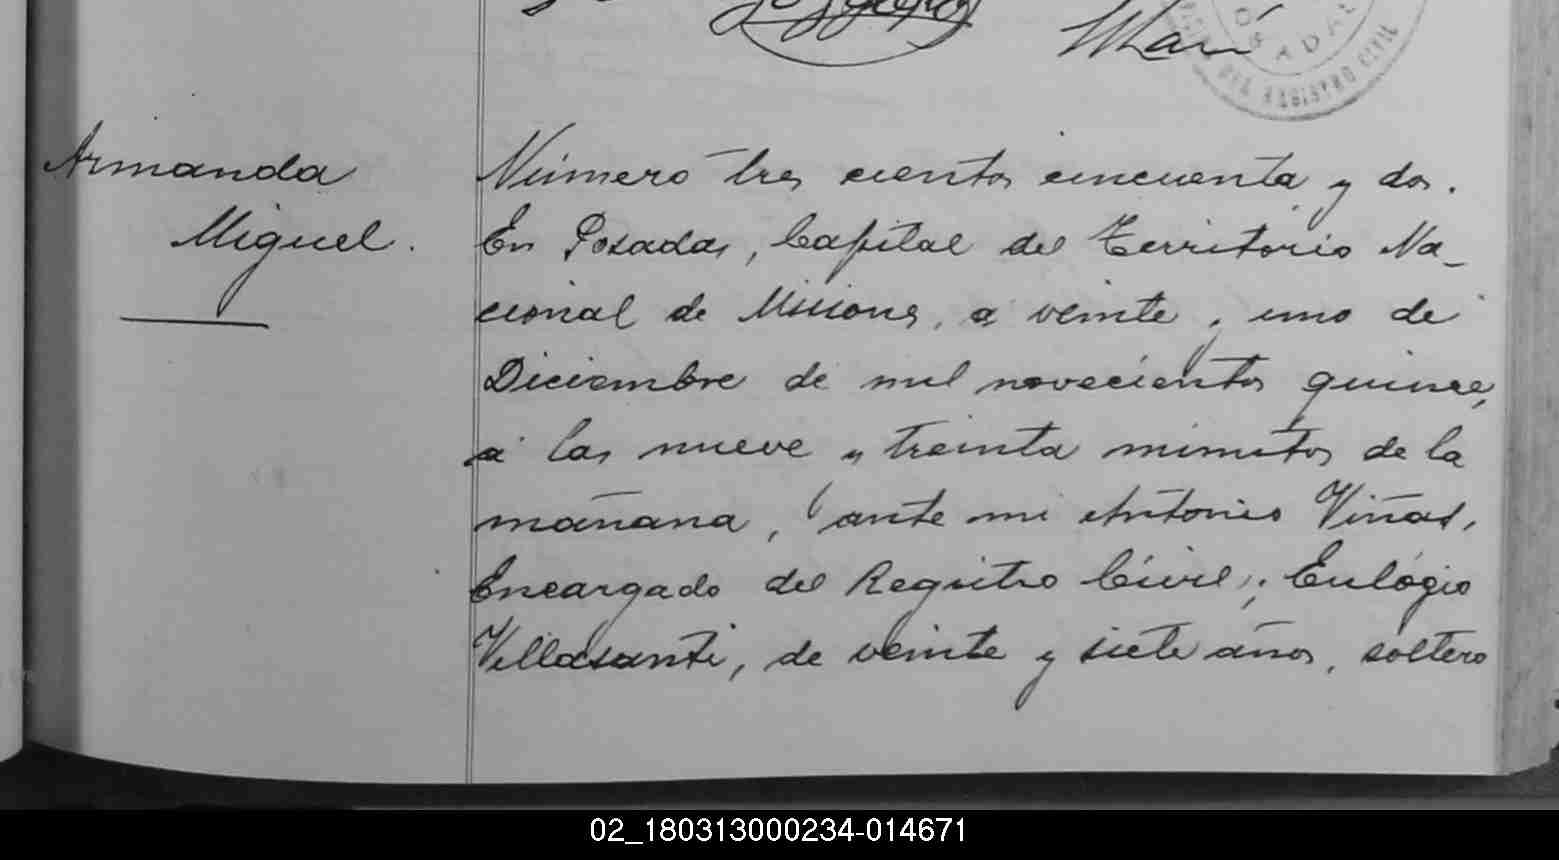 Marí
POSADAS
OFICINA DEL REGISTRO CIVIL
Armanda
Miguel.
Número tres cientos cincuenta y dos.
En Posadas, Capital del Territorio Na-
cional de Misiones, a veinte y uno de
Diciembre de mil novecientos quince,
á las nueve y treinta minutos de la
mañana, ante mi Antonio Viñas,
Encargado del Registro Civil; Eulógio
Villasanti, de veinte y siete años, soltero
02_180313000234-014671